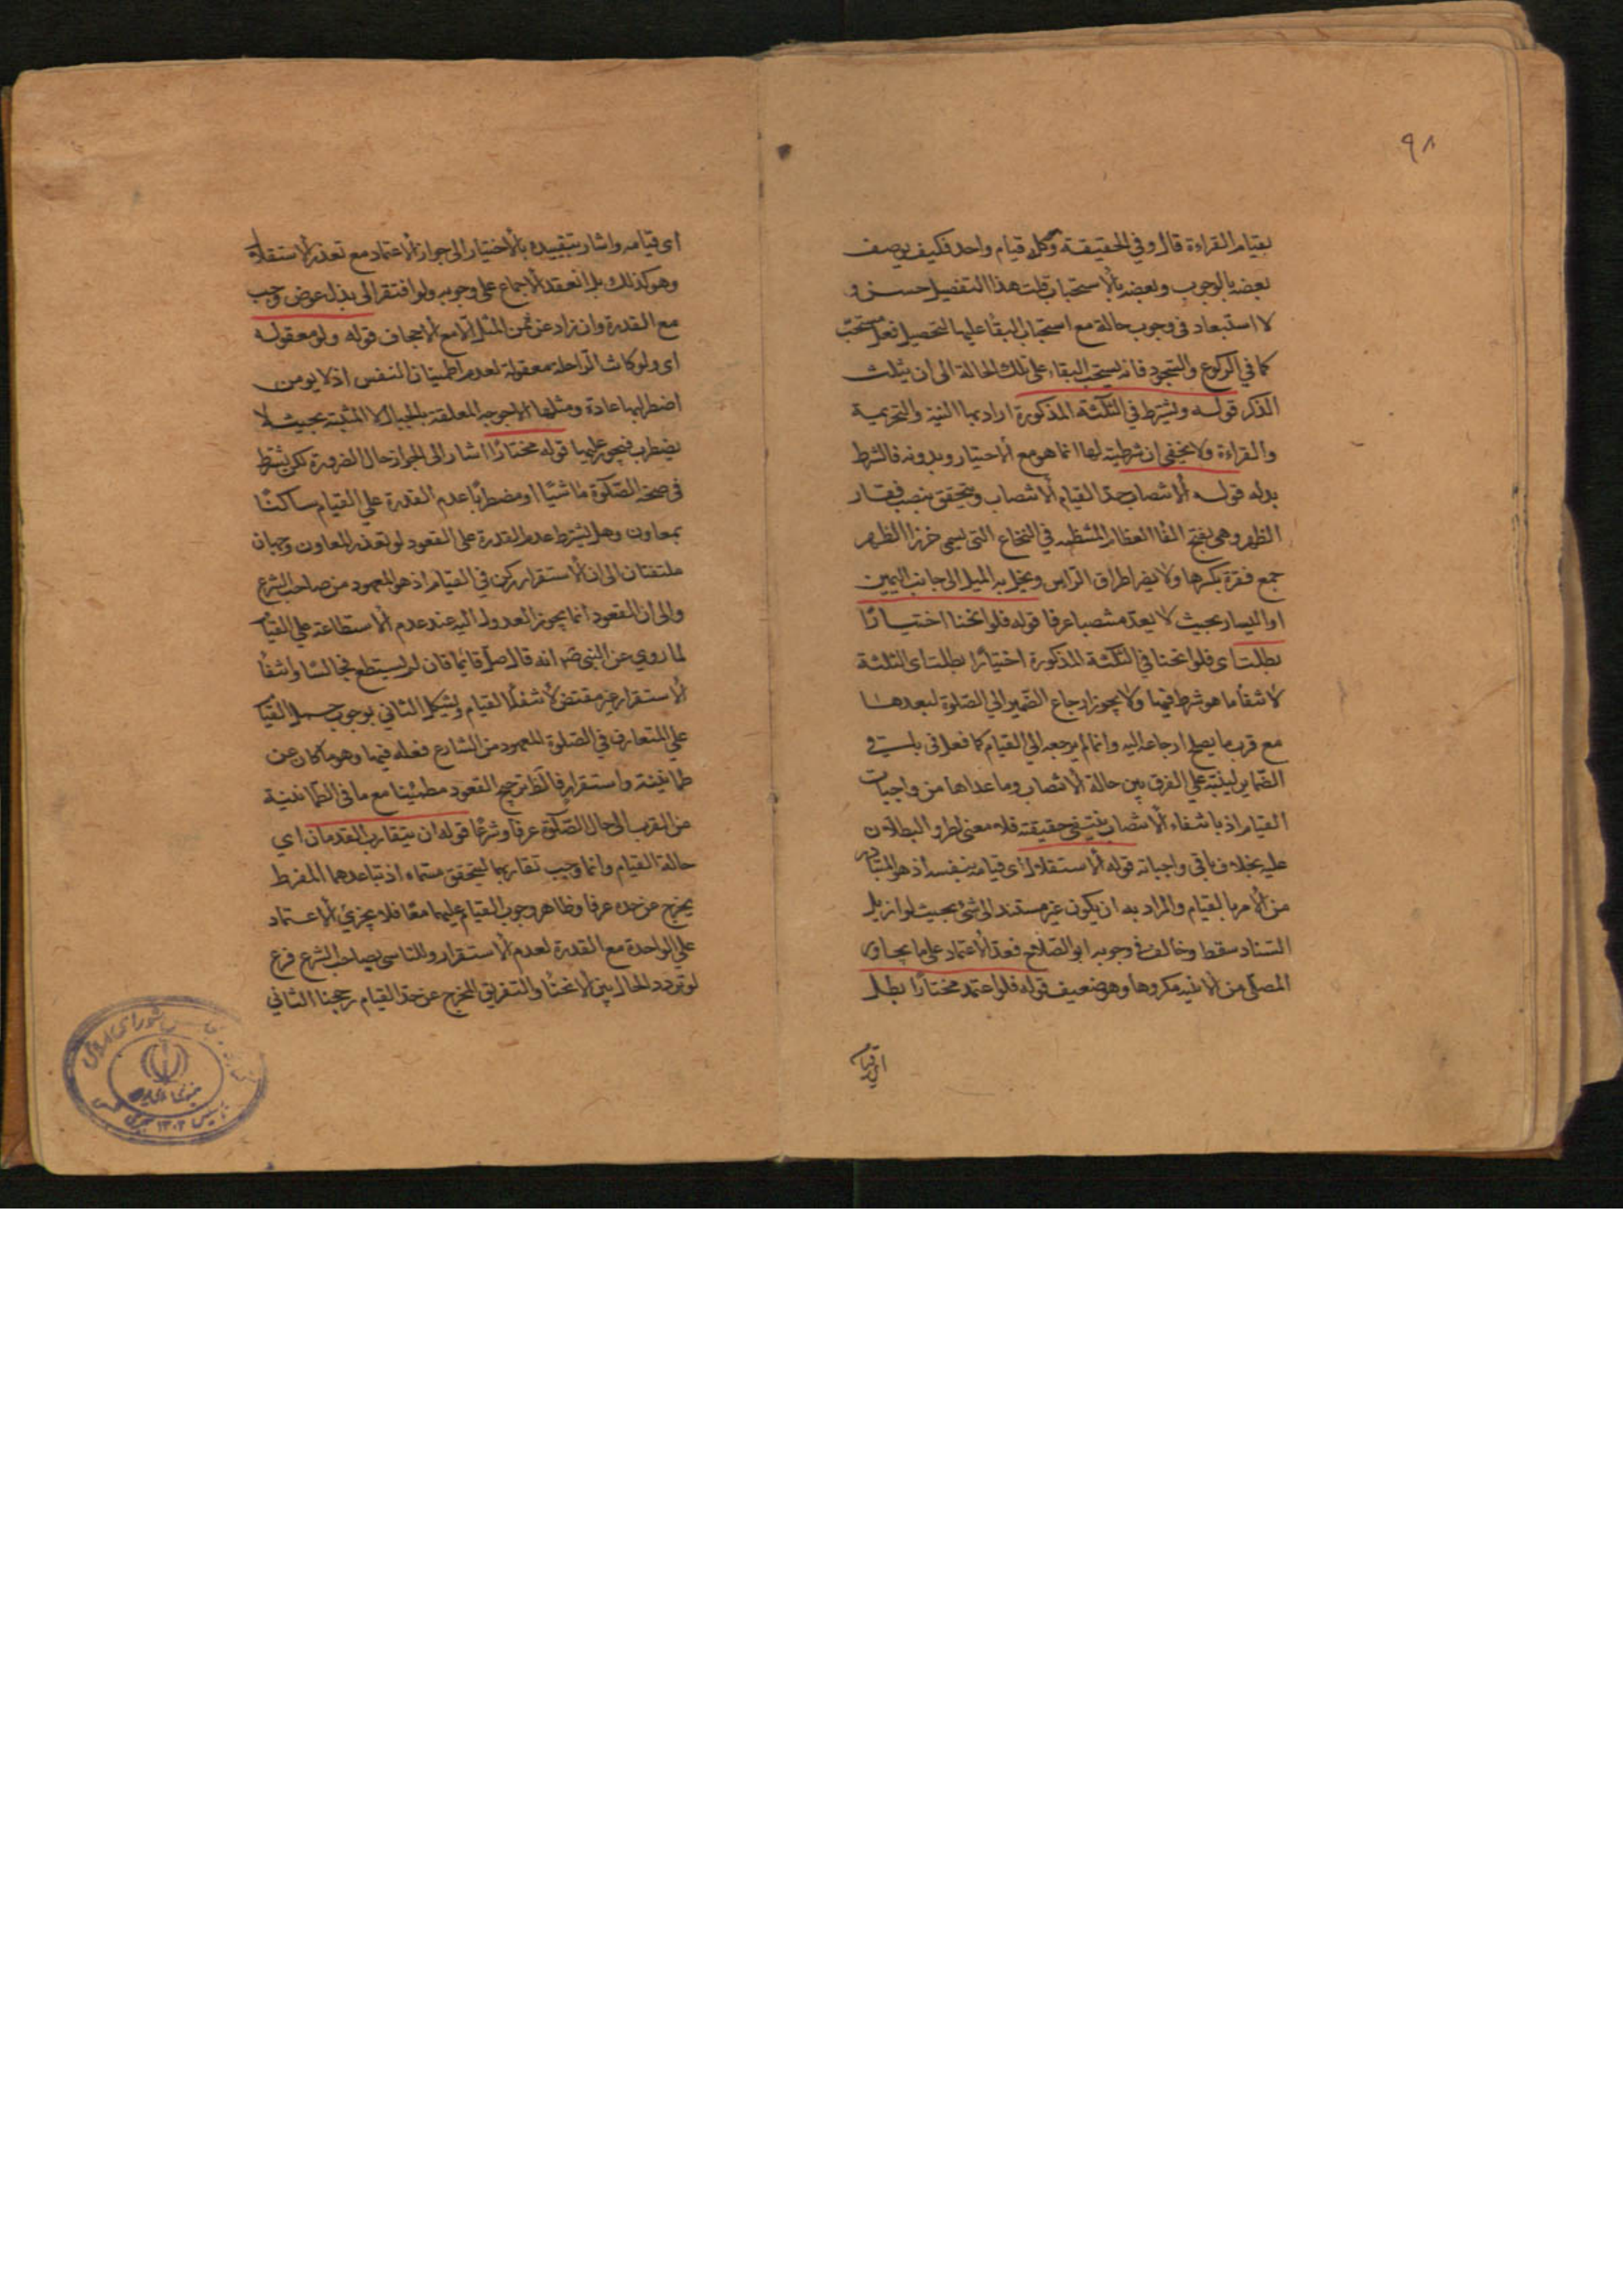 ٩٨
بقيام القراءة قال وفي الحقيقة وكله قيام واحد فكيف يوصف
بعضه بالوجوب وبعضه بالاستحباب قلت هذا التفصيل حسن و
لا استبعاد في وجوب حالة مع استحباب البقا عليها لتحصيل فعل مستحب
كما في الركوع والسجود فانه يستحب البقاء على تلك الحالة الى ان يثلث
الذكر قوله ويشترط في الثلثة المذكورة اراد بها النية والتحريمة
والقراءة ولا يخفى ان شرطيته لها انما هو مع الاختيار وبدونه فالشرط
بدله قوله الانتصاب حد القيام الانتصاب ويتحقق بنصب فقار
الظهر وهي بفتح الفا العظام المنتظمة في النخاع التي تسمى خرز الظهر
جمع فقرة بكسرها ولا يضر اطراق الراس ويخل به الميل الى جانب اليمين
او اليسار بحيث لا يعد منتصبا عرفا قوله فلو انحنا اختيارًا
بطلت اى فلو انحنا في الثلثة المذكورة اختيارًا بطلت اى الثلثة
لانتفأ ما هو شرط فيها ولا يجوز ارجاع الضمير الي الصلوة لبعدها
مع قرب ما يصلح ارجاعه اليه وانما لم يرجعه الي القيام كما فعل في باقي
الضماير لينبّه علي الفرق بين حالة الانتصاب وما عداها من واجبات
القيام اذ بانتفاء الانتصاب ينتفي حقيقته فلا معنى لطرو البطلان
عليه بخلاف باقى واجباته قوله الاستقلال اى قيامه بنفسه اذ هو المتبادر
من الامر بالقيام والمراد به ان يكون غير مستند الى شئ بحيث لو ازيل
السناد سقط وخالف في وجوبه ابو الصلاح فعد الاعتماد على ما يجاور
المصلى من الابنية مكروها وهو ضعيف قوله فلو اعتمد مختارًا بطل
اى قيامه
اى قيامه واشار بتقييده بالاختيار الى جواز الاعتماد مع تعذر الاستقلال
وهو كذلك بل انعقد الاجماع على وجوبه ولو افتقر الى بذل عوض وجب
مع القدرة وان زاد عن ثمن المثل الا مع الاجحاف قوله ولو معقولة
اى ولو كانت الراحلة معقولة لعدم اطمينان النفس اذ لا يومن
اضطرابها عادة ومثلها الارجوحة المعلقة بالحبال لا المثبتة بحيث لا
يضطرب فيجوز عليها قوله مختارًا اشار الى الجواز حال الضرورة لكن يشترط
في صحة الصلوة ماشيًا او مضطربًا عدم القدرة علي القيام ساكنًا
بمعاون وهل يشترط عدم القدرة على القعود لو تعذر المعاون وجهان
ملتفتان الى ان الاستقرار ركن في القيام اذ هو المعهود من صاحب الشرع
والى ان القعود انما يجوز العدول اليه عند عدم الاستطاعة علي القيام
لما روي عن النبي ص انه قال صل قائما فان لم تستطع فجالسا وانتفأ
الاستقرار غير مقتض لانتفأ القيام ويشكل الثاني بوجوب حمل القيام
علي المتعارف في الصلوة المعهود من الشارع فعله فيها وهو ما كان عن
طمانينة واستقرار فالظ ترجيح القعود مطمئنا مع ما في الطمانينة
من القرب الى حال الصلوة عرفًا وشرعًا قوله ان يتقارب القدمان اي
حالة القيام وانما وجب تقاربهما ليتحقق مسماه اذ تباعدهما المفرط
يخرج عن حده عرفا وظاهر وجوب القيام عليهما معًا فلا يجزئ الاعتماد
علي الواحدة مع القدرة لعدم الاستقرار وللتاسى بصاحب الشرع فرع
لو تردد الحال بين الانحنا والتفريق المخرج عن حد القيام رجحنا الثاني
شوراى اسلامى
تاسيس ١٣٠٢